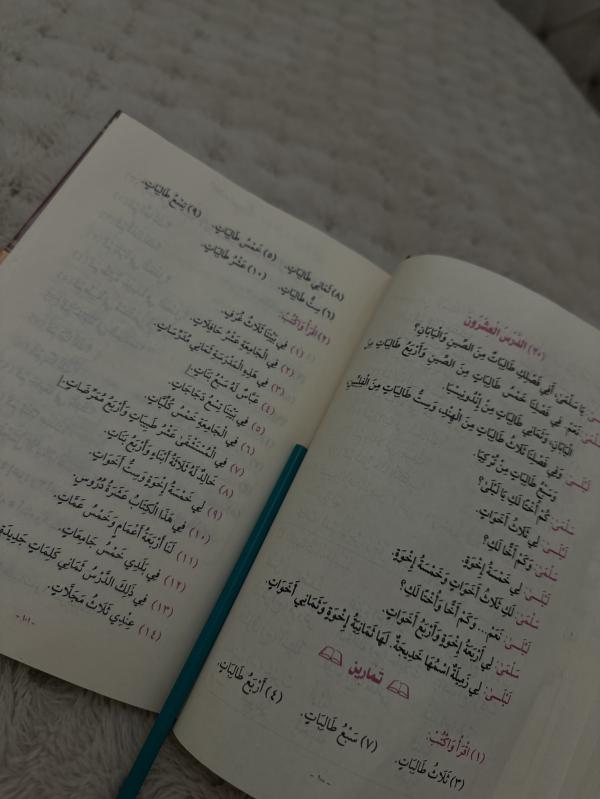 (٢٠) الدَّرْسُ الْعِشْرُونَ
يَا سَلْمَى، أَفِي فَصْلِكِ طَالِبَاتٌ مِنَ الصِّينِ وَالْيَابَانِ؟
نَعَمْ. فِي فَصْلِنَا خَمْسُ طَالِبَاتٍ مِنَ الصِّينِ وَأَرْبَعُ طَالِبَاتٍ مِنَ
الْيَابَانِ، وَثَمَانِي طَالِبَاتٍ مِنْ إِنْدُونِيسِيَا
لَيْلَى: وَفِي فَصْلِنَا ثَلَاثُ طَالِبَاتٍ مِنَ الْهِنْدِ، وَسِتُّ طَالِبَاتٍ مِنَ الْفِلِبِّينِ
وَسَبْعُ طَالِبَاتٍ مِنْ تُرْكِيَا.
سَلْمَى: كَمْ أُخْتًا لَكِ يَا لَيْلَى؟
لَيْلَى: لِي ثَلَاثُ أَخَوَاتٍ.
سَلْمَى: وَكَمْ أَخًا لَكِ؟
لَيْلَى: لِي خَمْسَةُ إِخْوَةٍ.
سَلْمَى: لَكِ ثَلَاثُ أَخَوَاتٍ وَخَمْسَةُ إِخْوَةٍ.
لَيْلَى: نَعَمْ... وَكَمْ أَخًا وَأُخْتًا لَكِ؟
سَلْمَى: لِي أَرْبَعَةُ إِخْوَةٍ وَأَرْبَعُ أَخَوَاتٍ.
لَيْلَى: لِي زَمِيلَةٌ اسْمُهَا خَدِيجَةُ. لَهَا ثَمَانِيَةُ إِخْوَةٍ وَثَمَانِي أَخَوَاتٍ.
تمارين
(١) اقْرَأْ وَاكْتُبْ:
(٣) ثَلَاثُ طَالِبَاتٍ. (٧) سَبْعُ طَالِبَاتٍ. (٤) أَرْبَعُ طَالِبَاتٍ.
- ١٠٠ -
(٨) ثَمَانِي طَالِبَاتٍ. (٥) خَمْسُ طَالِبَاتٍ. (٩) تِسْعُ طَالِبَاتٍ.
(٦) سِتُّ طَالِبَاتٍ. (١٠) عَشْرُ طَالِبَاتٍ.
(٢) اقْرَأْ وَاكْتُبْ:
(١) فِي بَيْتِنَا ثَلَاثُ غُرَفٍ.
(٢) فِي الْجَامِعَةِ عَشْرُ حَافِلَاتٍ.
(٣) فِي هَذِهِ الْمَدْرَسَةِ ثَمَانِي مُدَرِّسَاتٍ.
(٤) عَبَّاسٌ لَهُ سَبْعُ بَنَاتٍ.
(٥) فِي بَيْتِنَا تِسْعُ دَجَاجَاتٍ.
(٦) فِي الْجَامِعَةِ خَمْسُ كُلِّيَّاتٍ.
(٧) فِي الْمُسْتَشْفَى عَشْرُ طَبِيبَاتٍ وَأَرْبَعُ مُمَرِّضَاتٍ.
(٨) خَالِدٌ لَهُ ثَلَاثَةُ أَبْنَاءٍ وَأَرْبَعُ بَنَاتٍ.
(٩) لِي خَمْسَةُ إِخْوَةٍ وَسِتُّ أَخَوَاتٍ.
(١٠) فِي هَذَا الْكِتَابِ عَشَرَةُ دُرُوسٍ.
(١١) لَنَا أَرْبَعَةُ أَعْمَامٍ وَخَمْسُ عَمَّاتٍ.
(١٢) فِي بَلَدِي خَمْسُ جَامِعَاتٍ.
(١٣) فِي ذَلِكَ الدَّرْسِ ثَمَانِي كَلِمَاتٍ جَدِيدَةٍ
(١٤) عِنْدِي ثَلَاثُ مَجَلَّاتٍ.
- ١٠١ -